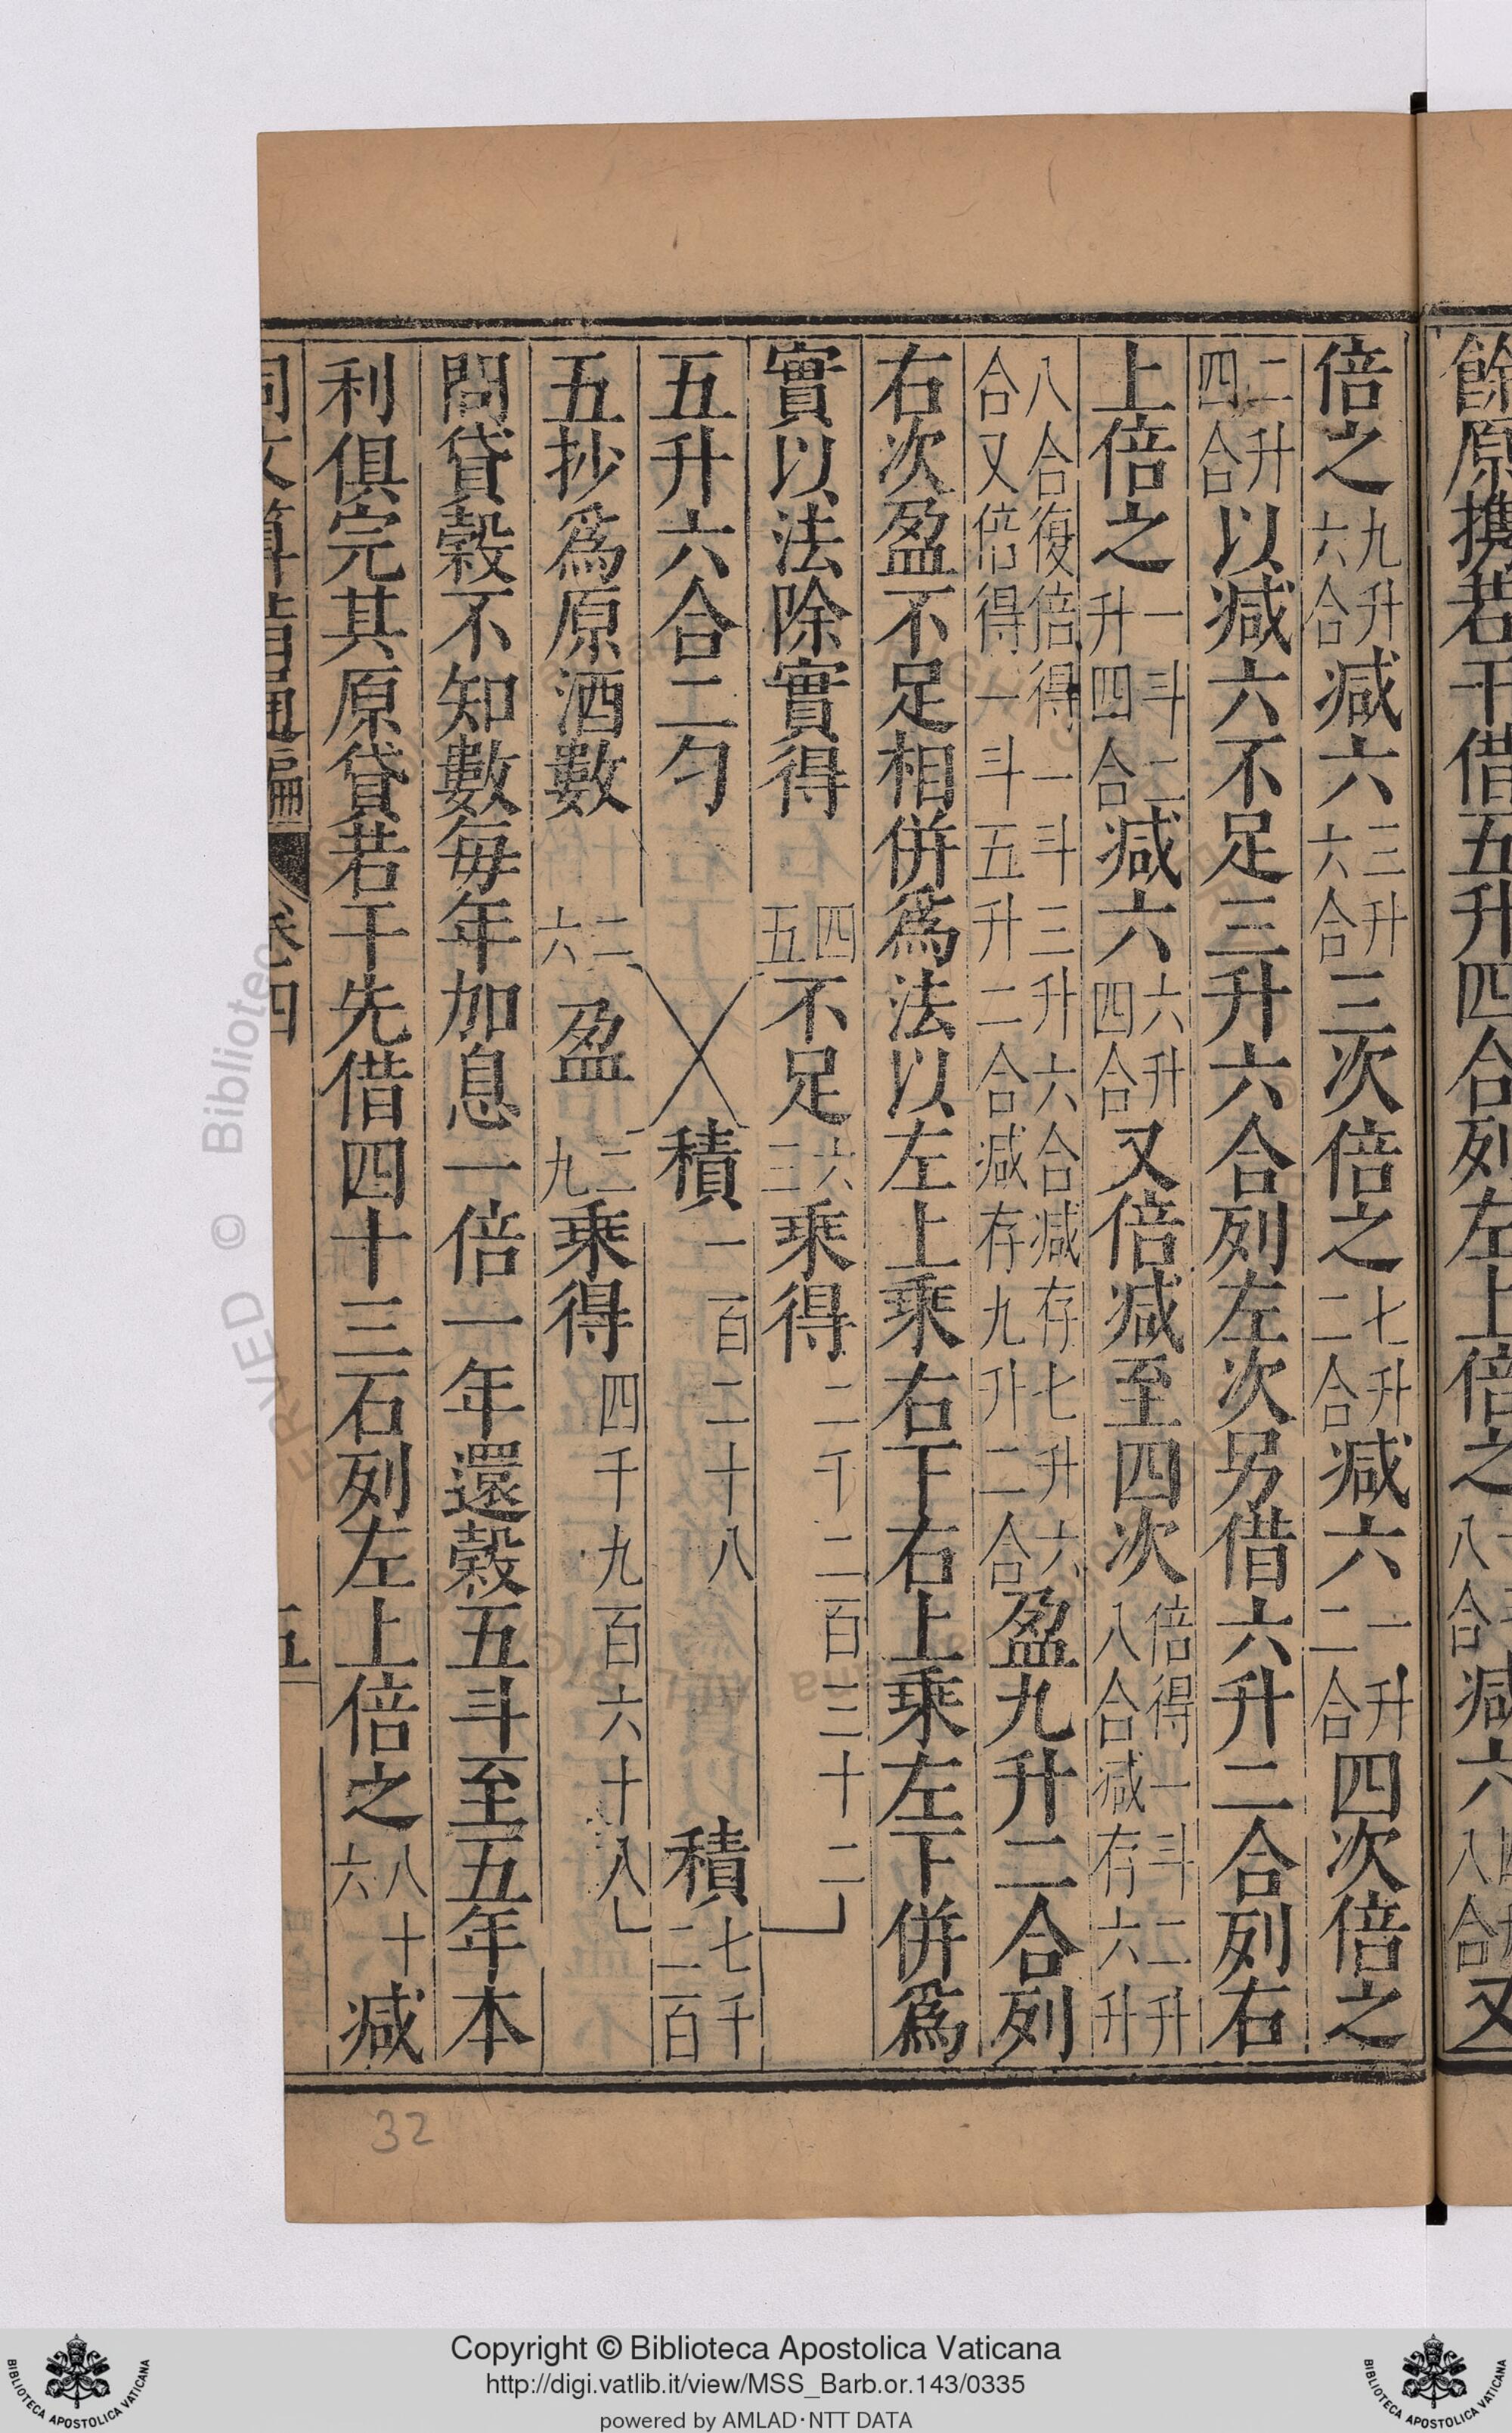 餘原攜若干借五升四合列左上倍之八合減六八合又
倍之九升六合減六三升六合三次倍之七升二合減六一升二合四次倍之
二升四合以減六不足三升六合列左次另借六升二合列右
上倍之一斗二升四合減六六升四合又倍減至四次倍得一斗二升八合減存六升
八合復倍得一斗三升六合減存七升六合又倍得一斗五升二合減存九升二合盈九升二合列
右次盈不足相併爲法以左上乘右下右上乘左下併爲
實以法除實得
五升六合二勺
五抄爲原酒數
四五不足六三乘得二千二百三十二
積一百二十八
積七千二百
二六盈二九乘得四千九百六十八
問貸穀不知數每年加息一倍一年還穀五斗至五年本
利俱完其原貸若干先借四十三石列左上倍之八十六減
同文算指通編 卷四 五
32
RVED © Bibliotec
Copyright © Biblioteca Apostolica Vaticana
http://digi.vatlib.it/view/MSS_Barb.or.143/0335
powered by AMLAD·NTT DATA
BIBLIOTECA APOSTOLICA VATICANA
BIBLIOTECA APOSTOLICA VATICANA